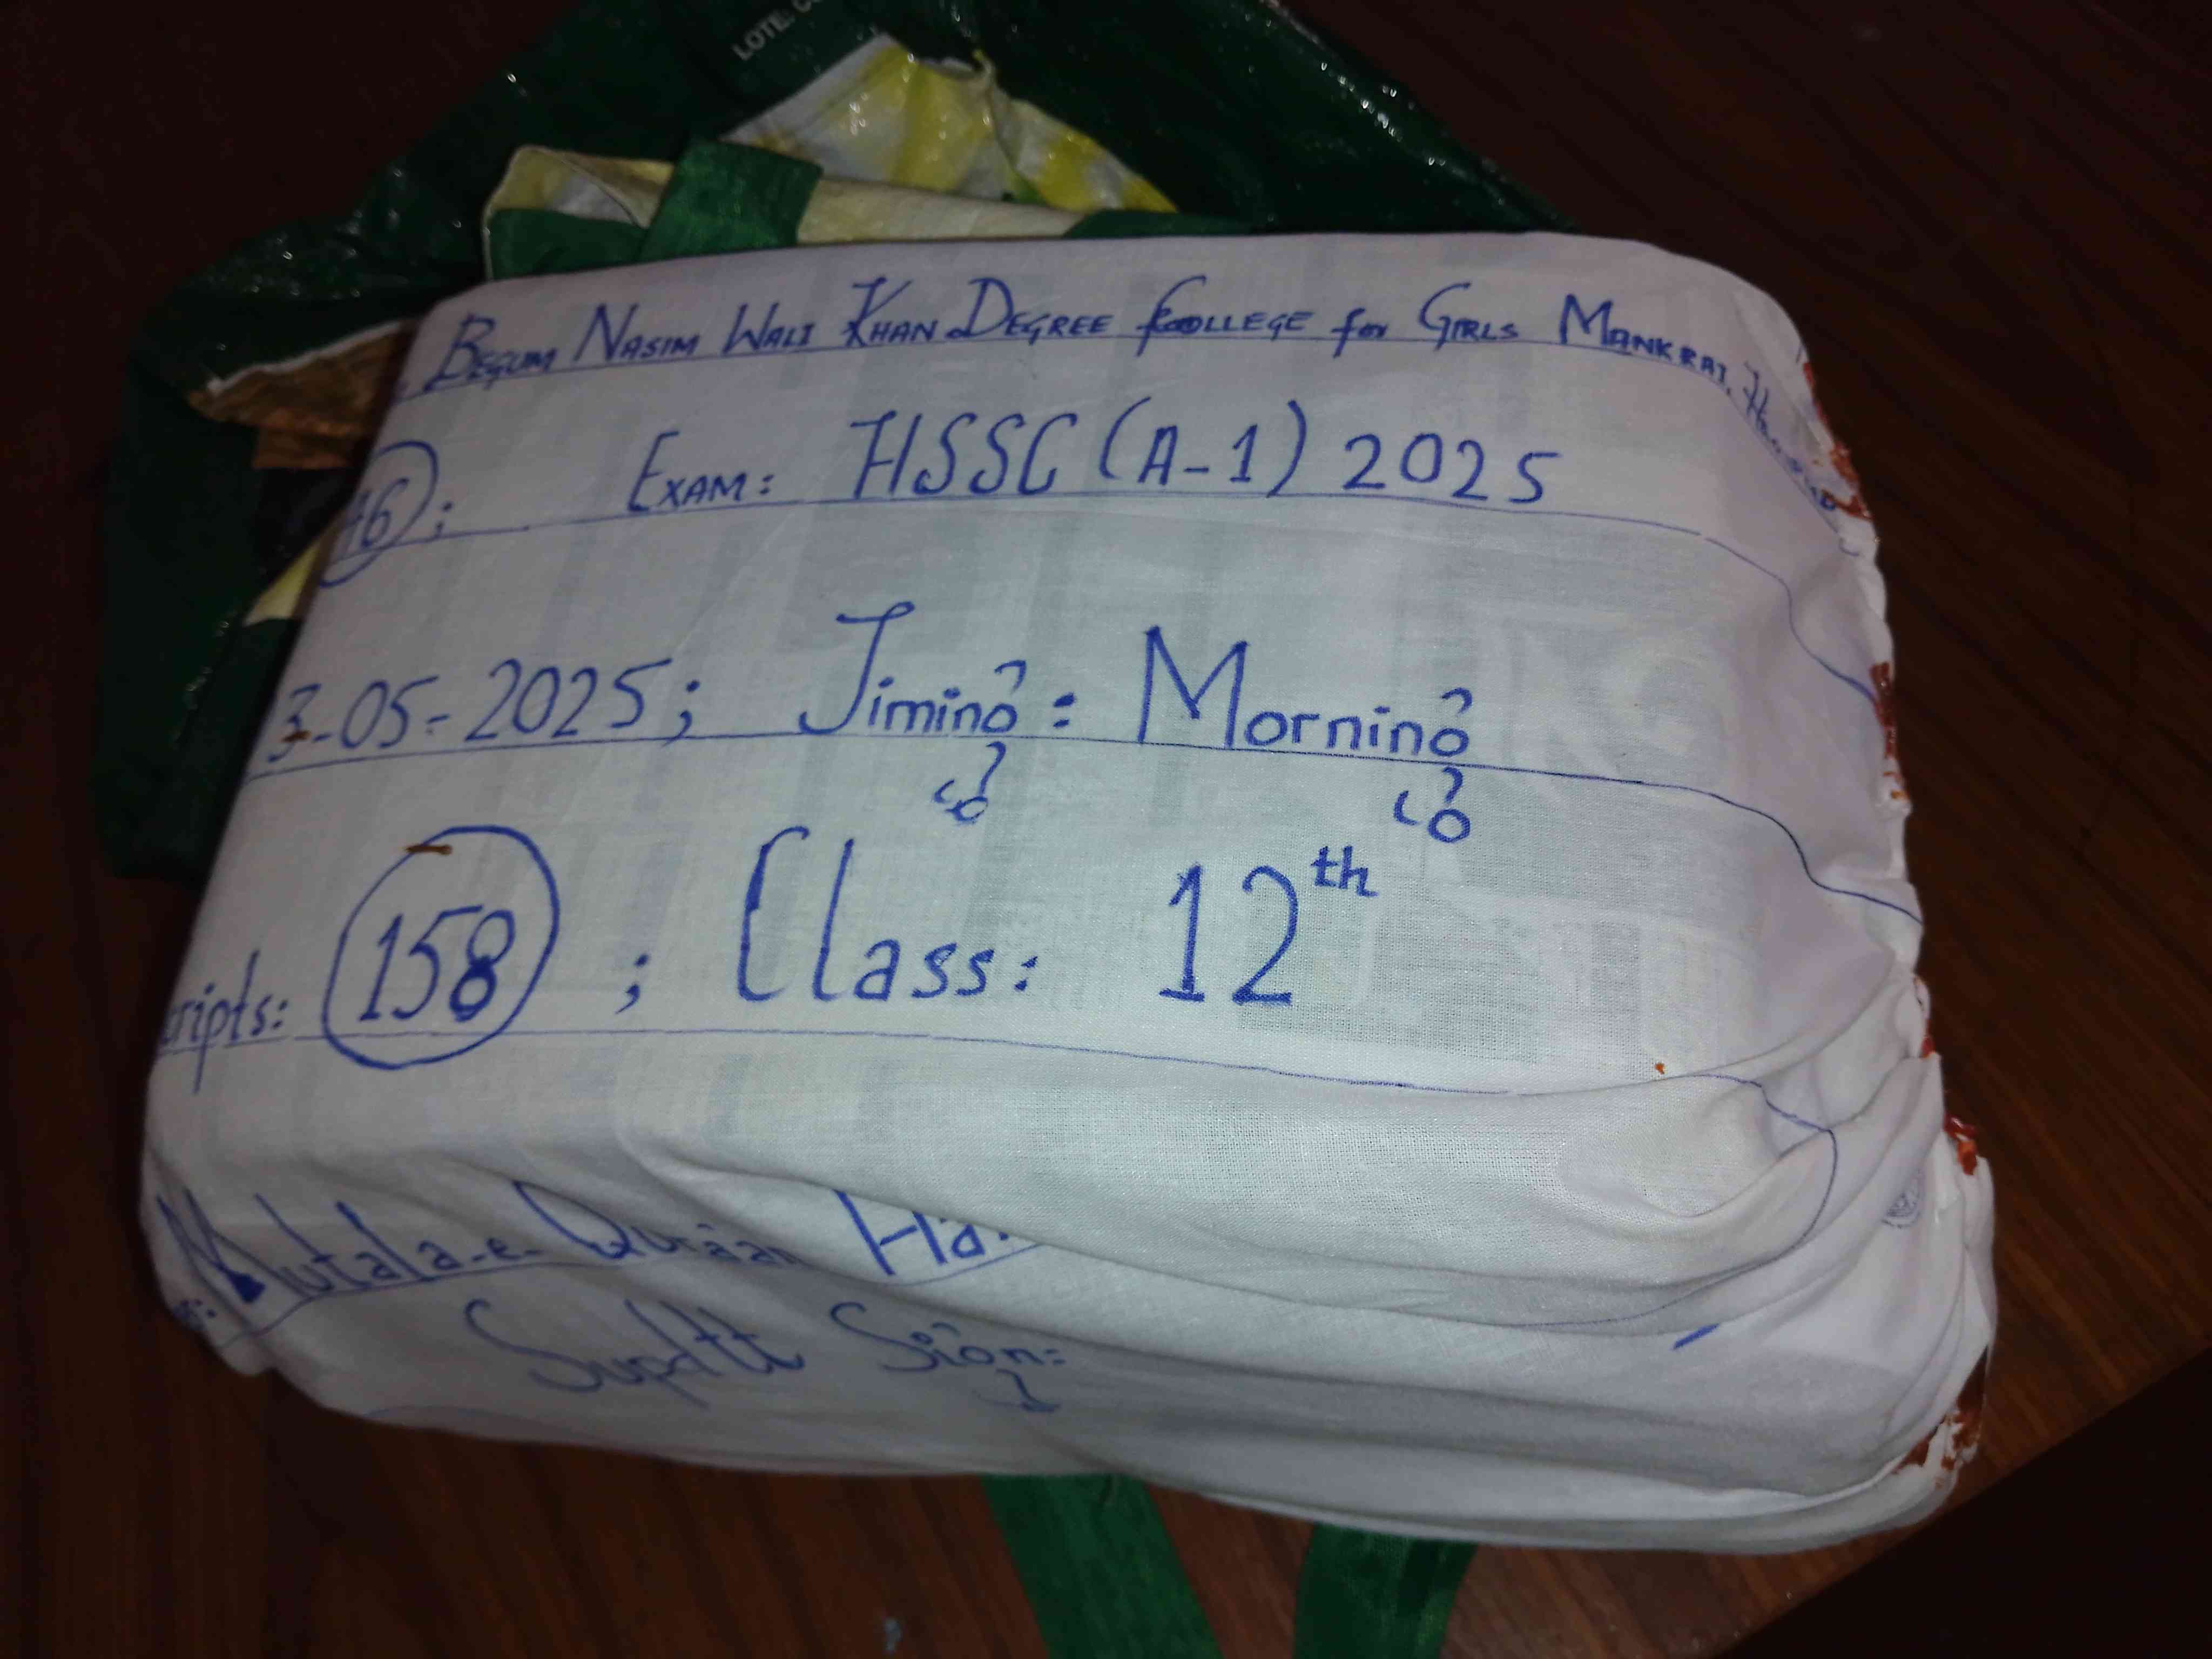 LOTE:
BEGUM NASIM WALI KHAN DEGREE COLLEGE for GIRLS MANKRAI,
16; EXAM: HSSC (A-1) 2025
3-05-2025; Timing: Morning
cripts: 158 ; Class: 12th
Mutala-e-Quraan Ha
Supdtt Sign: